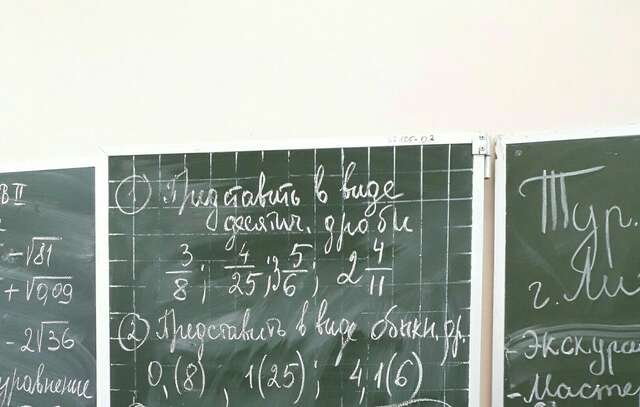 В II
-√81
+√0,09
-2√36
уравнение
① Представить в виде
десятич. дроби
3/8; 4/25; 3 5/6; 2 4/11
② Представить в виде обыкн. др.
0,(8), 1(25); 4,1(6)
Тур.
г. Ли
- Экскур
- Масте